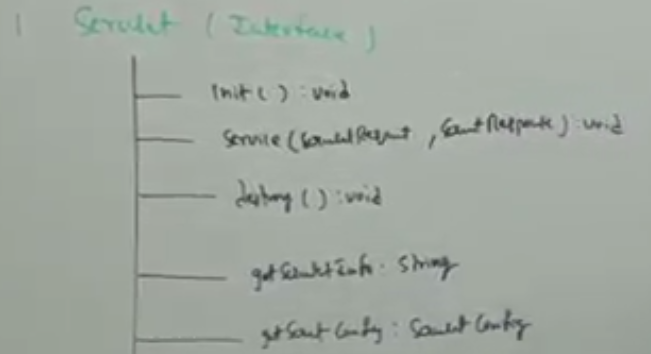 1 Servlet (Interface)
init() : void
Service(ServletRequest, ServletResponse) : void
destroy() : void
getServletInfo : String
getServletConfig : ServletConfig